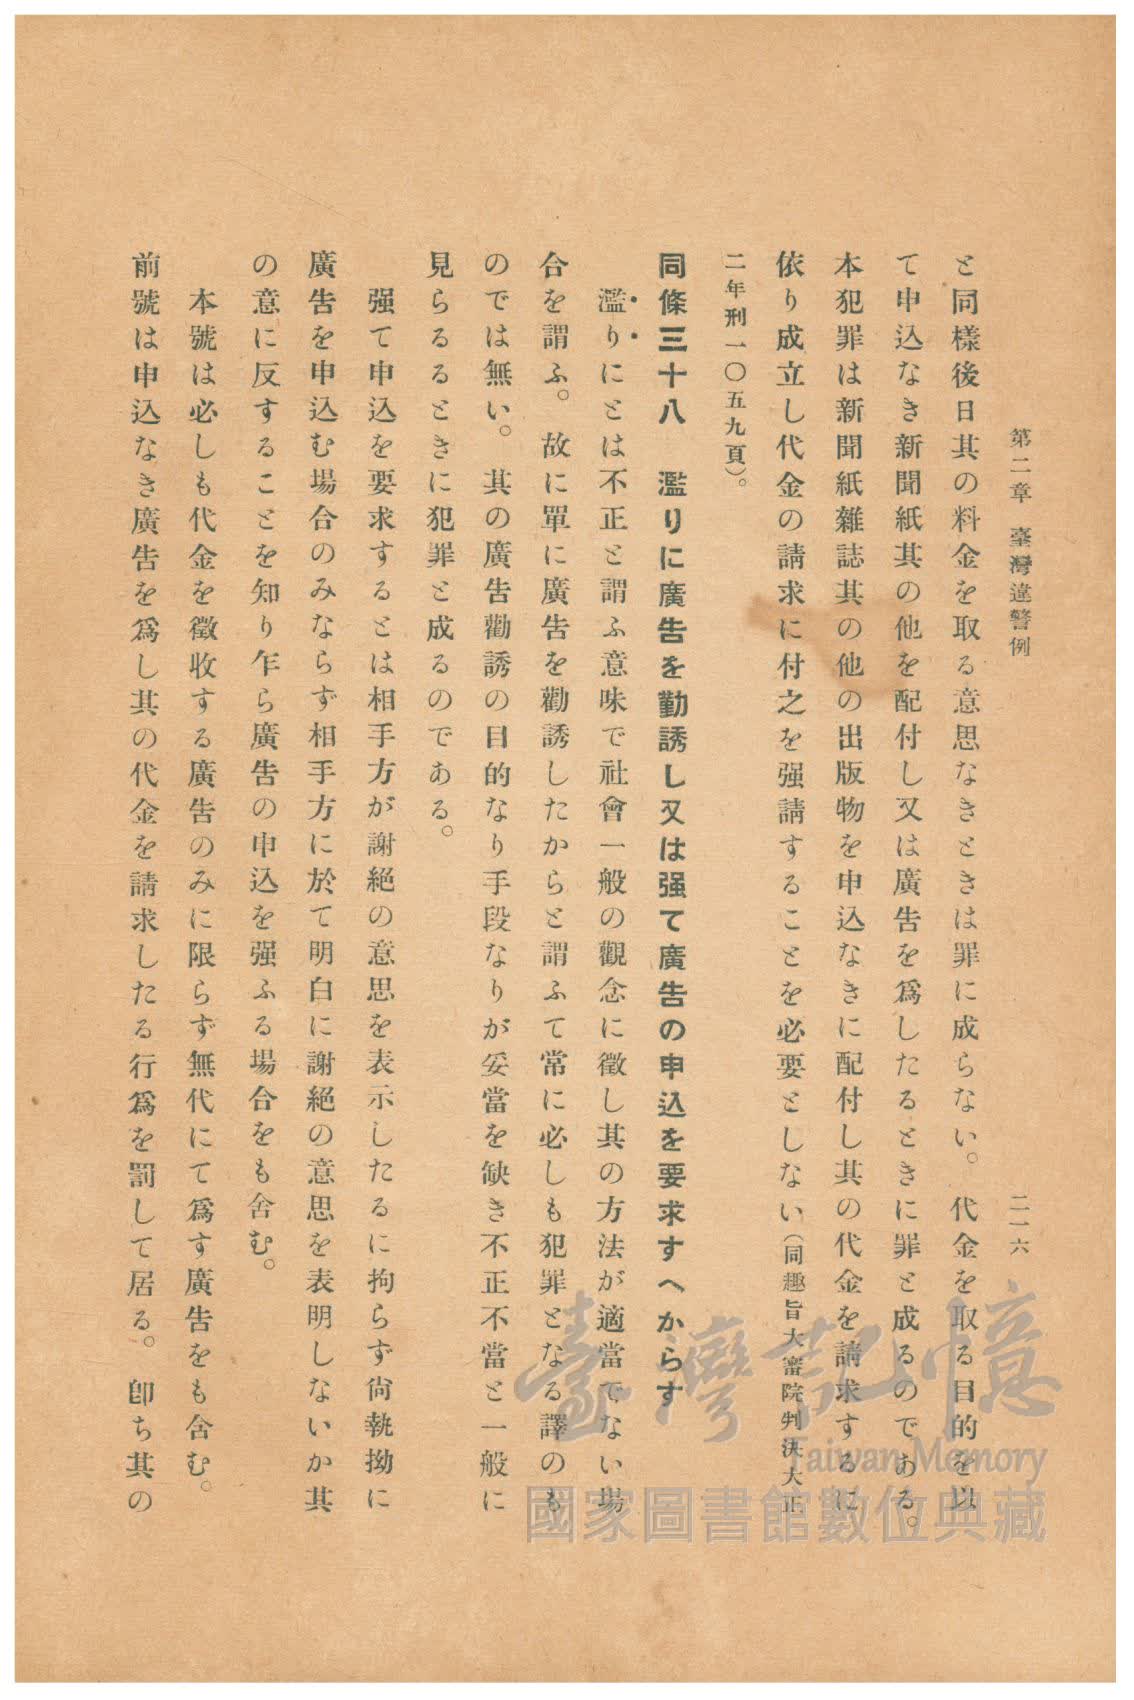 第二章 臺灣違警例
二一六
と同樣後日其の料金を取る意思なきときは罪に成らない。代金を取る目的を以
て申込なき新聞紙其の他を配付し又は廣告を爲したるときに罪と成るのである。
本犯罪は新聞紙雜誌其の他の出版物を申込なきに配付し其の代金を請求するに
依り成立し代金の請求に付之を强請することを必要としない（同趣旨大審院判決大正
二年刑一〇五九頁）。
同條三十八 濫りに廣告を勸誘し又は强て廣告の申込を要求すへからす
濫りにとは不正と謂ふ意味で社會一般の觀念に徵し其の方法が適當でない場
合を謂ふ。故に單に廣告を勸誘したからと謂ふて常に必しも犯罪となる譯のも
のでは無い。其の廣告勸誘の目的なり手段なりが妥當を缺き不正不當と一般に
見らるるときに犯罪と成るのである。
强て申込を要求するとは相手方が謝絕の意思を表示したるに拘らず尙執拗に
廣告を申込む場合のみならず相手方に於て明白に謝絕の意思を表明しないか其
の意に反することを知り乍ら廣告の申込を强ふる場合をも含む。
本號は必しも代金を徵收する廣告のみに限らず無代にて爲す廣告をも含む。
前號は申込なき廣告を爲し其の代金を請求したる行爲を罰して居る。卽ち其の
臺灣記憶
Taiwan Memory
國家圖書館數位典藏